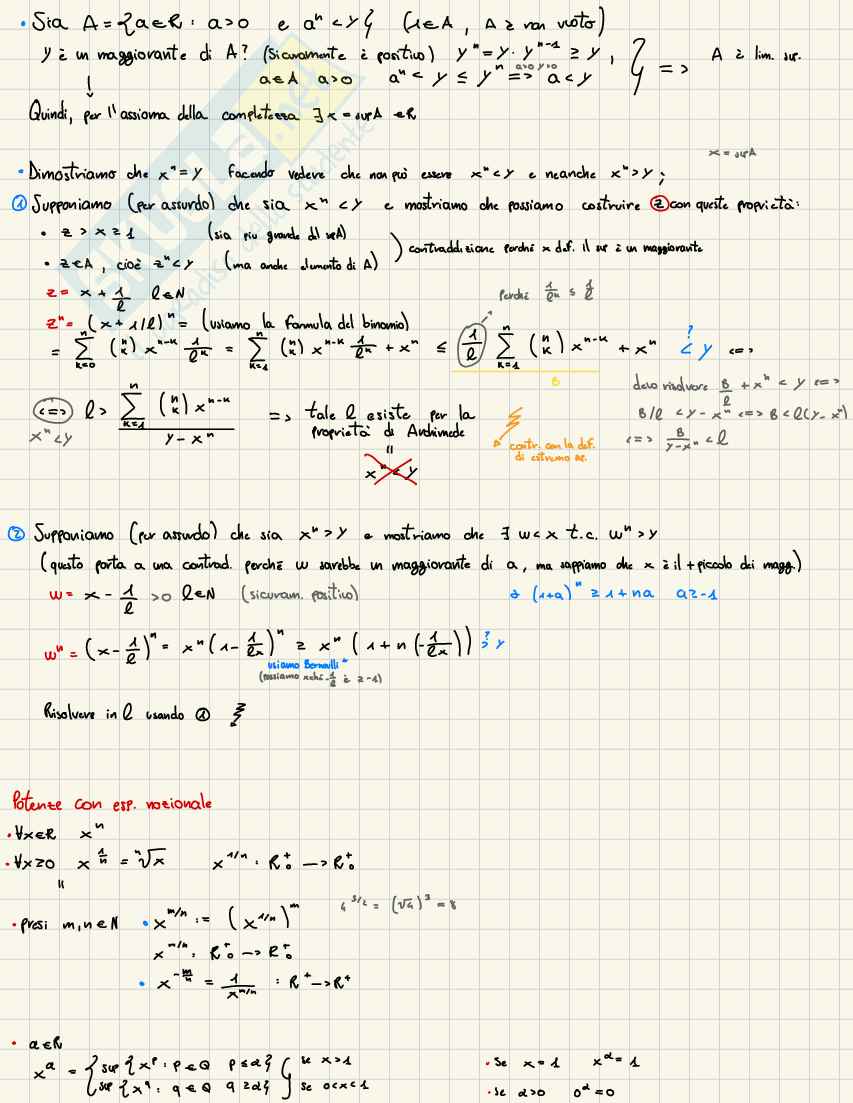 • Sia A = {a∈R : a>0 e aⁿ < y} (1∈A, A è non vuoto)
y è un maggiorante di A? (Sicuramente è positivo) yⁿ = y · yⁿ⁻¹ ≥ y, } => A è lim. sup.
a∈A a>0 aⁿ < y ≤ yⁿ => a < y
a>0 y>0
Quindi, per l'assioma della completezza ∃ x = sup A ∈R
x = sup A
• Dimostriamo che xⁿ = y facendo vedere che non può essere xⁿ < y e neanche xⁿ > y;
① Supponiamo (per assurdo) che sia xⁿ < y e mostriamo che possiamo costruire z con queste proprietà:
• z > x ≥ 1 (sia più grande del supA)
) contraddizione perché x def. il sup è un maggiorante
• z∈A, cioè zⁿ < y (ma anche elemento di A)
z = x + 1/l l∈N
perché 1/lᵏ ≤ 1/l
zⁿ = (x + 1/l)ⁿ = (usiamo la formula del binomio)
= ∑ₖ₌₀ⁿ (n k) xⁿ⁻ᵏ 1/lᵏ = ∑ₖ₌₁ⁿ (n k) xⁿ⁻ᵏ 1/lᵏ + xⁿ ≤ 1/l ∑ₖ₌₁ⁿ (n k) xⁿ⁻ᵏ + xⁿ <? y <=>
B
devo risolvere B/l + xⁿ < y <=>
B/l < y - xⁿ <=> B < l(y - xⁿ)
<=> B/(y-xⁿ) < l
<=> l > ∑ₖ₌₁ⁿ (n k) xⁿ⁻ᵏ / (y - xⁿ) => tale l esiste per la
xⁿ < y
proprietà di Archimede
contr. con la def.
di estremo
xⁿ < y
② Supponiamo (per assurdo) che sia xⁿ > y e mostriamo che ∃ w < x t.c. wⁿ > y
(questo porta a una contrad. perché w sarebbe un maggiorante di a, ma sappiamo che x è il + piccolo dei magg.)
w = x - 1/l > 0 l∈N (sicuram. positivo)
(1+a)ⁿ ≥ 1 + na a ≥ -1
wⁿ = (x - 1/l)ⁿ = xⁿ (1 - 1/lx)ⁿ ≥ xⁿ (1 + n (-1/lx)) >? y
usiamo Bernoulli
(possiamo xché -1/l è ≥ -1)
Risolvere in l usando ①
Potenze con esp. razionale
• ∀x∈R xⁿ
• ∀x≥0 x^(1/n) = ⁿ√x x^(1/n) : R₀⁺ —> R₀⁺
• presi m,n∈N • x^(m/n) := (x^(1/n))ᵐ
4^(3/2) = (√4)³ = 8
x^(m/n) : R₀⁺ —> R₀⁺
• x^(-m/n) = 1/x^(m/n) : R⁺ —> R⁺
• α∈R
x^α = { sup {xᵖ : p∈Q p≤α} se x>1
sup {x^q : q∈Q q≥α} } se 0<x<1
• Se x = 1 x^α = 1
• se α>0 0^α = 0